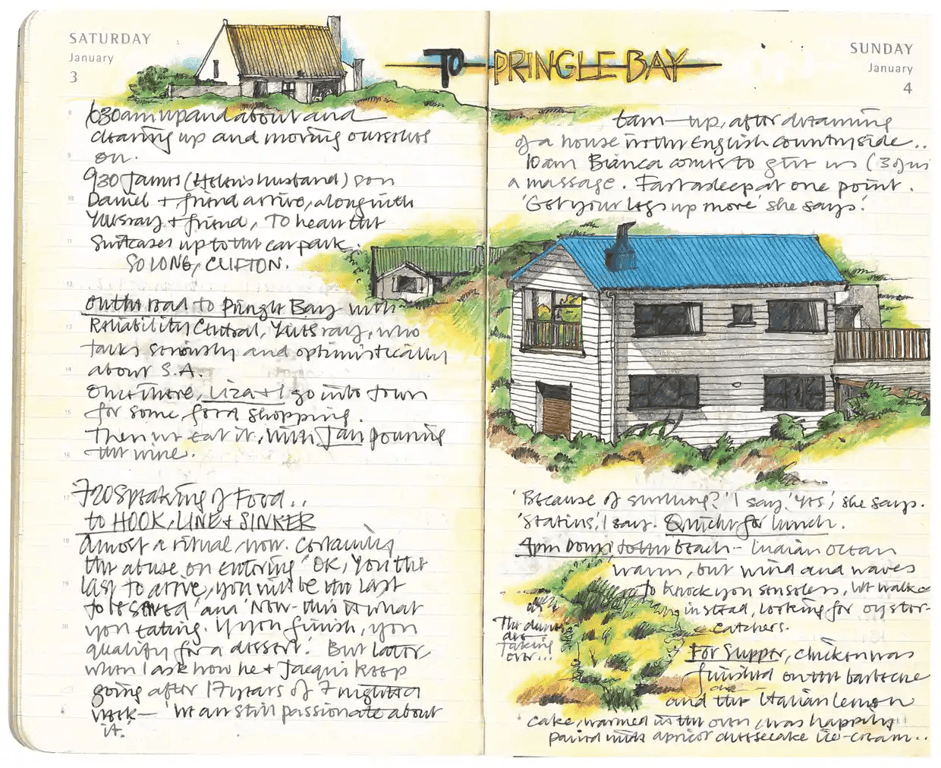 SATURDAY
January
3
TO PRINGLE BAY
SUNDAY
January
4
630am up and about and
clearing up and moving ourselves
on.
930 James (Helen's husband) son
Daniel + friend arrive, along with
Yusray + friend, To hear the
Suitcases up to the car park.
SO LONG, CLIFTON.
On the road to Pringle Bay with
Reliability Central, Yusray, who
talks seriously and optimistically
about S.A.
Once there, Liza + I go into town
for some, food shopping.
Then we eat it, with Jan pouring
the wine.
720 Speaking of Food..
to HOOK, LINE + SINKER
Almost a ritual, now. Certainly
the abuse on entering 'OK, you the
last to arrive, you will be the last
to be served' and 'Now - this is what
you eating. If you finish, you
quality for a dessert.' But later
when I ask how he + Jacqui keep
going after 17 years of 7 nights a
week - 'We are still passionate about
it.'
6am - up, after dreaming
of a house in the English countryside..
10am Bianca comes to give us (3 of us
a massage. Fast asleep at one point.
'Get your legs up more' she says.'
'Because of surfing?' I say. 'Yes', she says.
'Statins', I say. Quiche for lunch.
4pm Down to the beach - Indian Ocean
warm, but wind and waves
to knock you senseless, we walk
instead, looking for oyster
catchers.
The dunes
are
taking
over...
For Supper, chicken was
finished on the barbecue
and the Italian lemon
cake, warmed in the oven, was happily
paired with apricot cheesecake ice-cream..